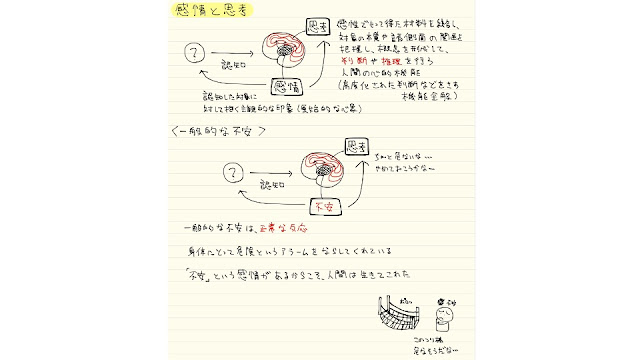 感情と思考
思考
?
認知
感情
感性でとって得た材料を統合し、
対象の様々な諸側面の関連を
把握し、概念を形成して、
判断や推理を行う
人間の心的機能
(高度化された判断などをさす
機能全般)
認知した対象に
対して抱く主観的な印象(原始的な心象)
〈一般的な不安〉
思考
?
認知
不安
やめておこうかな〜
一般的な不安は、正常な反応
身体にとって危険というアラームをならしてくれている
「不安」という感情があるからこそ、人間は生きてこれた
不安
このつり橋
危なそうだな…